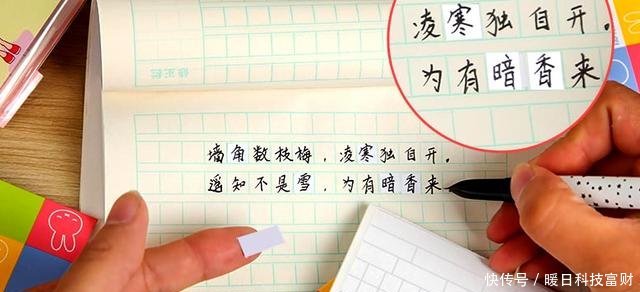 凌寒独自开.
为有暗香来
墙角数枝梅，凌寒独自开.
遥知不是雪，为有暗香来
快传号／暖日科技富财